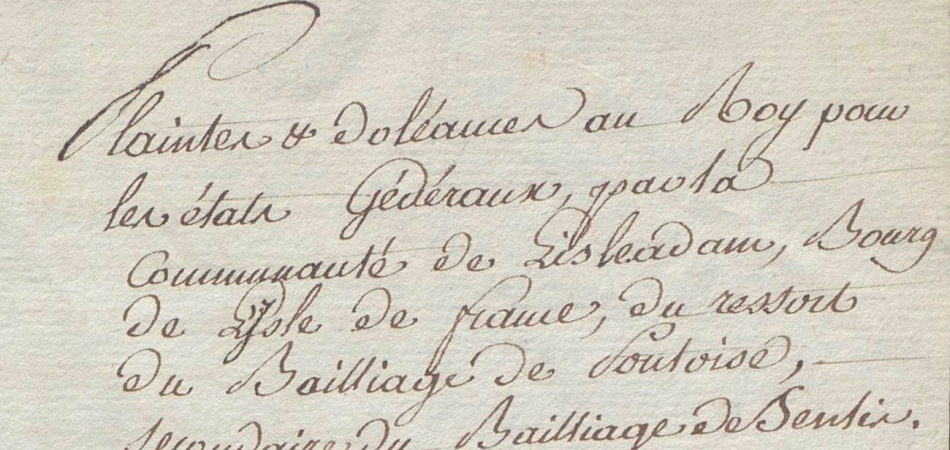 Plaintes & doléances au Roy pour
les états Gédéraux, par la
Communauté de Lisleadam, Bourg
de L'isle de france, du ressort
du Bailliage de Pontoise,
secondaire du Bailliage de Senlis.